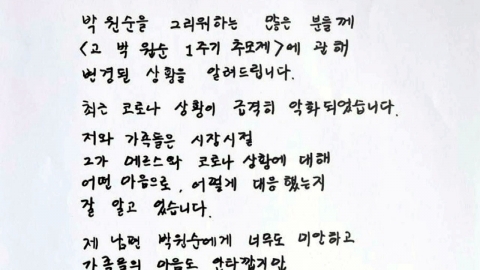 박원순을 그리워하는 많은 분들께
<고 박원순 1주기 추모제>에 관해
변경된 상황을 알려드립니다.
최근 코로나 상황이 급격히 악화되었습니다.
저와 가족들은 시장시절
그가 메르스와 코로나 상황에 대해
어떤 마음으로, 어떻게 대응했는지
잘 알고 있습니다.
제 남편 박원순에게 너무도 미안하고
가족들의 마음도 안타깝지만